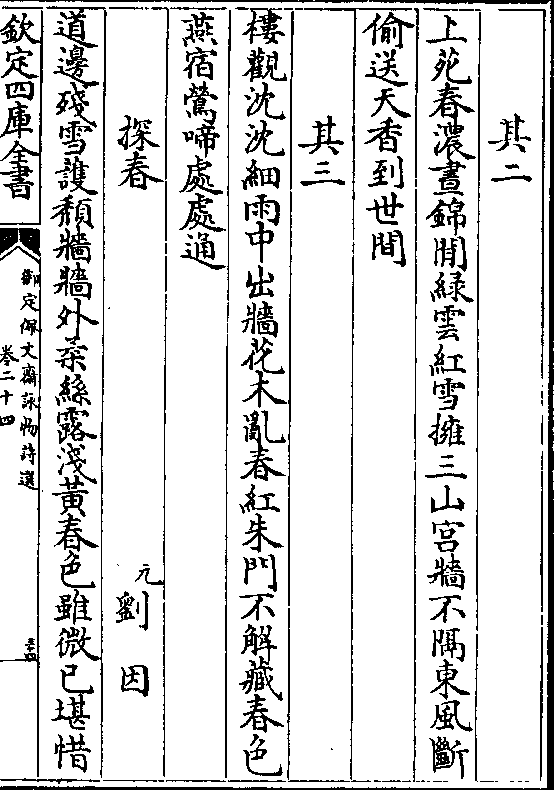 其二
上苑春濃晝錦閒綠雲紅雪擁三山宮牆不隔東風斷
偷送天香到世間
其三
樓觀沈沈細雨中出牆花木亂春紅朱門不解藏春色
燕宿鶯啼處處通
探春
元劉因
道邊殘雪護頹牆牆外柔絲露淺黃春色雖微已堪惜
欽定四庫全書
御定佩文齋詠物詩選
卷二十四